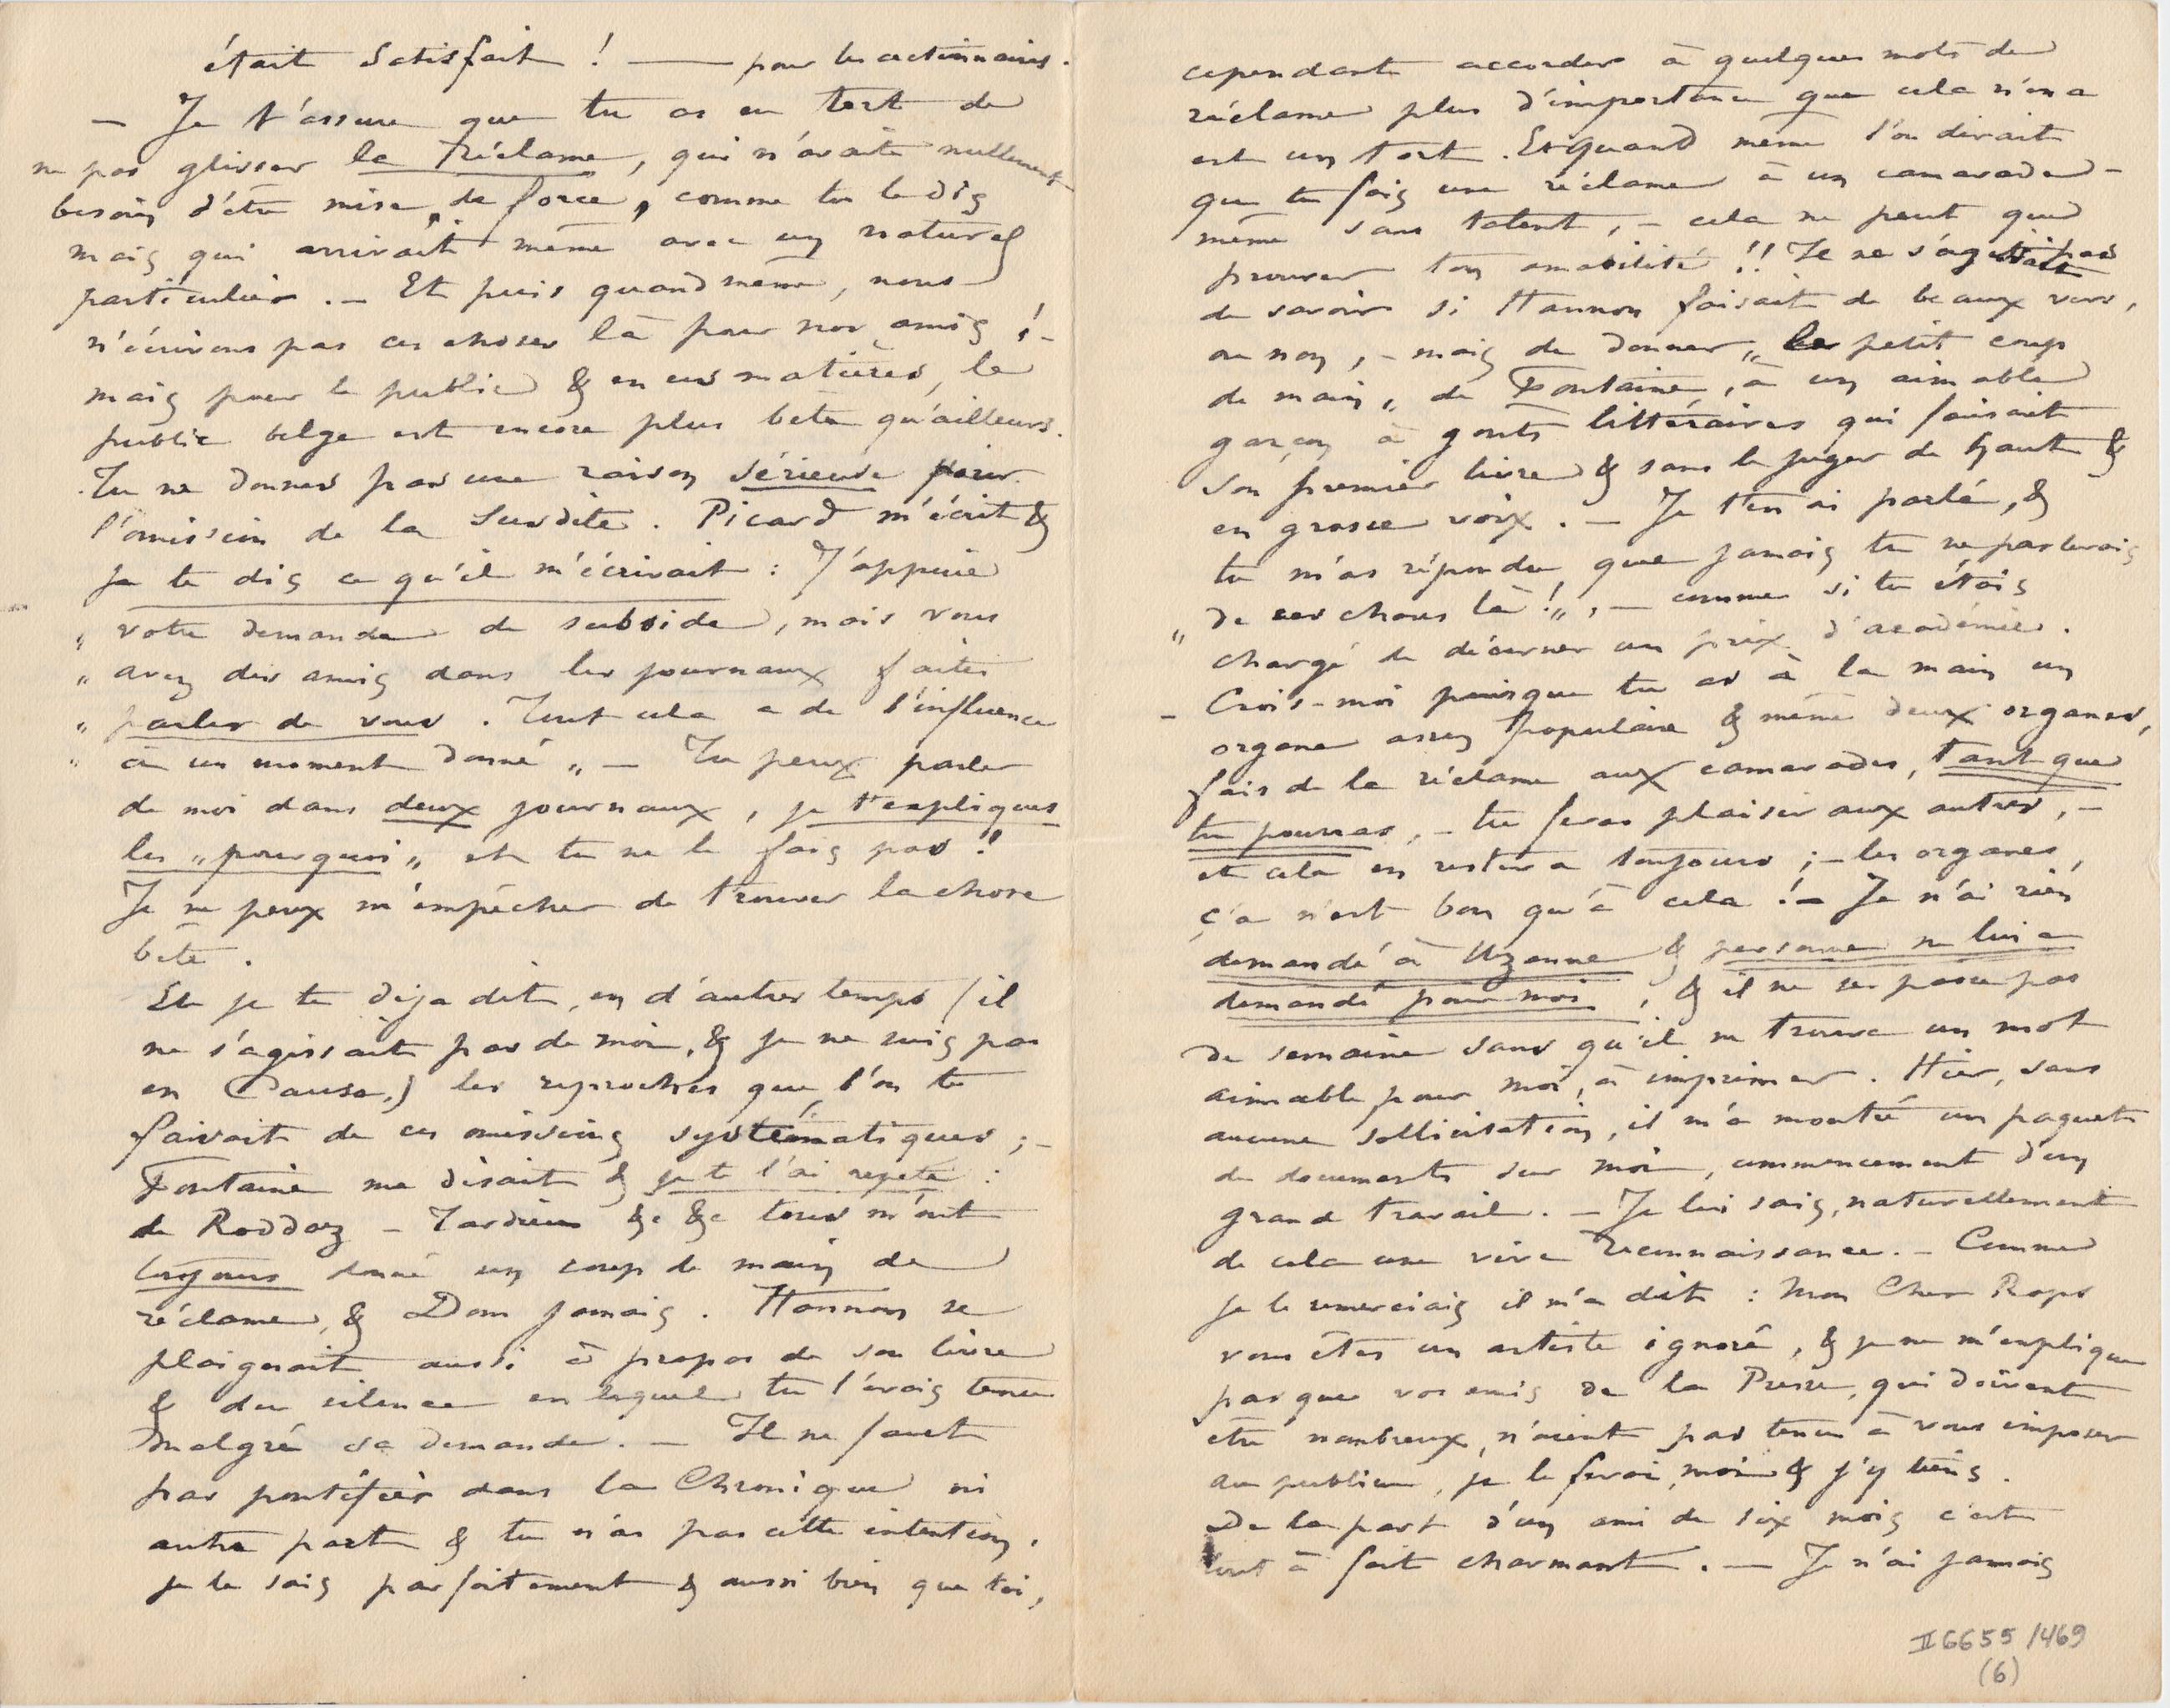 était satisfait ! — pour les actionnaires.
— Je t'assure que tu as eu tort de
ne pas glisser la réclame, qui n'avait nullement
besoin d'être mise „de force„ comme tu le dis
mais qui arrivait même avec un naturel
particulier. — Et puis quand même, nous
n'écrivons pas ces choses là pour nos amis ! –
mais pour le public & en ces matières, le
public belge est encore plus bête qu'ailleurs.
Tu ne donnes pas une raison sérieuse pour
l'omission de la susdite. Picard m'écrit &
je te dis ce qu'il m'écrivait : J'appuie
„ votre demande de subside, mais vous
„ avez des amis dans les journaux faites
„ parler de vous. Tout cela a de l'influence
„ à un moment donné „ — Tu peux parler
de moi dans deux journaux, je t'expliques
les „pourquoi„ et tu ne le fais pas !
Je ne peux m'empêcher de trouver la chose
bête.
Et je te dija dit, en d'autres temps (il
ne s'agissait pas de moi, & je ne suis pas
en Cause,) les reproches que l'on te
faisait de ces omissions systématiques ; –
Fontaine me disait & je te l'ai repeté :
de Roddaz – Tardieu &c &c tous m'ont
toujours donné un coup de main de
réclame, & Dom jamais. Hannon se
plaignait aussi à propos de son livre
& du silence en lequel tu l'avais tenu
malgré sa demande. — Il ne faut
pas pontifier dans la Chronique ni
autre part & tu n'as pas cette intention,
je le sais parfaitement & aussi bien que toi,
cependant accorder à quelques mots de
réclame plus d'importance que cela n'en a
est un tort. Et quand même l'on dirait
que tu fais une réclame à un camarade –
même sans talent, – cela ne peut que
prouver ton amabilité !! Il ne s'agissait pas
de savoir si Hannon faisait de beaux vers,
ou non, – mais de donner „ le petit coup
de main „ de Fontaine, à un aimable
garçon à goûts littéraires qui faisait
son premier livre & sans le juger de haut &
en grosse voix. — Je t'en ai parlé, &
tu m'as répondu que jamais tu ne parlerais
„ de ces choses là ! „, — comme si tu étais
chargé de décerner un prix d'académie.
– Crois-moi puisque tu as à la main un
organe assez populaire & même deux organes,
fais de la réclame aux camarades, tant que
tu pourras, – tu feras plaisir aux autres, –
et cela en restera toujours ; – les organes,
ç'a n'est bon qu'à cela ! – Je n'ai rien
demandé à Uzanne & personne ne lui a
demandé pour moi, & il ne se passe pas
de semaine sans qu'il ne trouve un mot
aimable pour moi, à imprimer. Hier, sans
aucune sollicitation, il m'a montré un paquet
de documents sur moi, commencement d'un
grand travail. — Je lui sais, naturellement
de cela une vive reconnaissance. – Comme
je le remerciais il m'a dit : Mon Cher Rops
vous êtes un artiste ignoré, & je ne m'explique
pas que vos amis de la Presse, qui doivent
être nombreux, n'aient pas tenu à vous imposer
au public, je le ferai, moi & j'y tiens.
De la part d'un ami de six mois c'est
tout à fait charmant. — Je n'ai jamais
II 6655 / 469
(6)